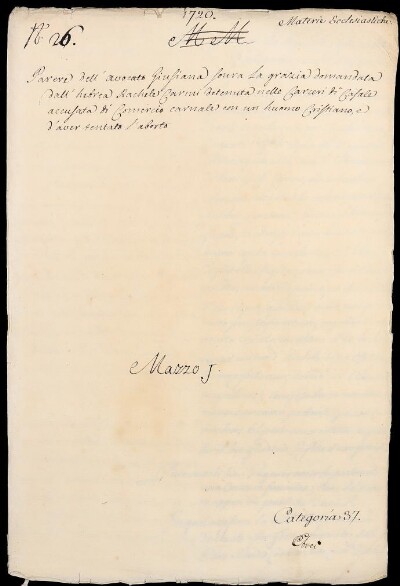 1720.
Materie Ecclesiastiche
N.° 26.
M M
Parere dell' avocato Giusiana soura La grazia domandata
dall' hebrea Rachele Carmi detenuta nelle Carceri di Casale
accusata di Comercio carnale con un huomo Cristiano, e
d'aver tentato l'aborto
Mazzo J.
Categoria 37.
Ebrei